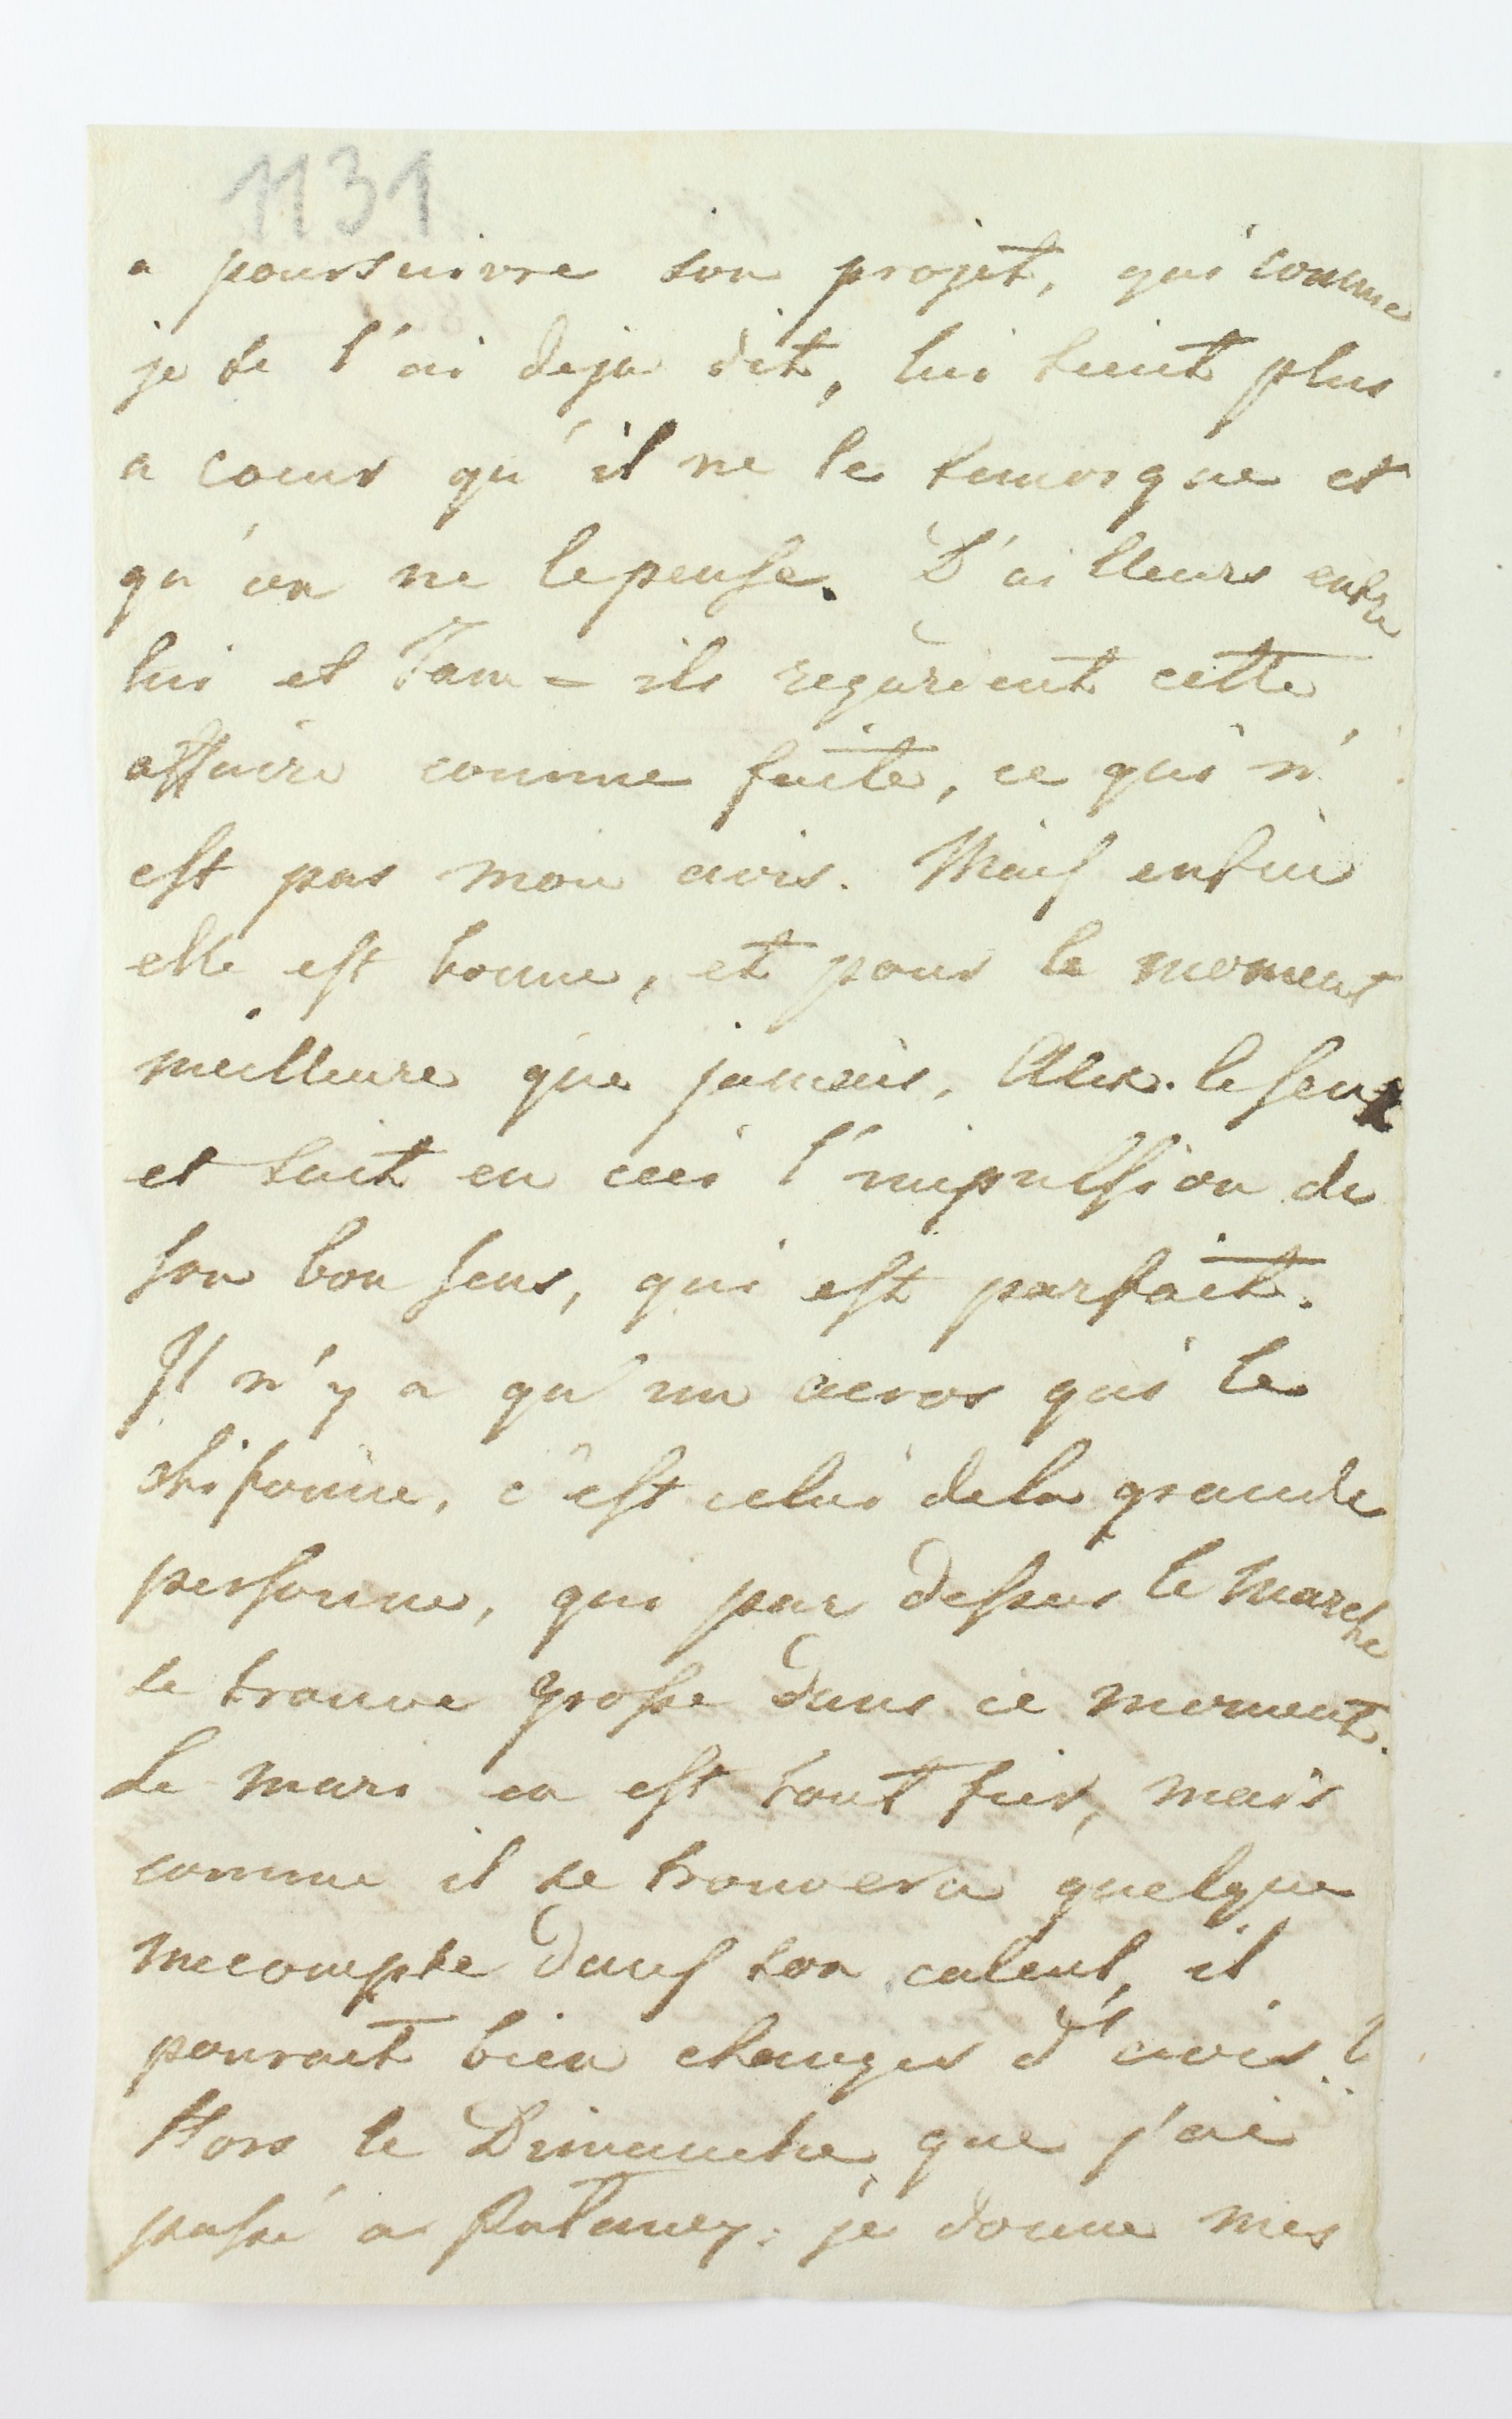 1131
a poursuivre son projet, qui comme
je te l'ai deja dit, lui tient plus
a coeur qu'il ne le temoigne et
qu'on ne le pense. D'ailleurs entre
lui et Tam = ils regardent cette
affaire comme faite, ce qui n'
est pas mon avis. Mais enfin
elle est bonne, et pour le moment
meilleure que jamais, Alex. le sent
et suit en ceci l'impulsion de
son bon sens, qui est parfait.
Il n'y a qu'un accros qui le
chifonne, c'est celui de la grande
personne, qui par dessus le marche
se trouve grosse dans ce moment.
Le mari en est tout fier, mais
comme il se trouvera quelque
mecompte dans son calcul, il
pourait bien changer d'avis!
Hors le Dimanche que j'ai
passé a je donne mes